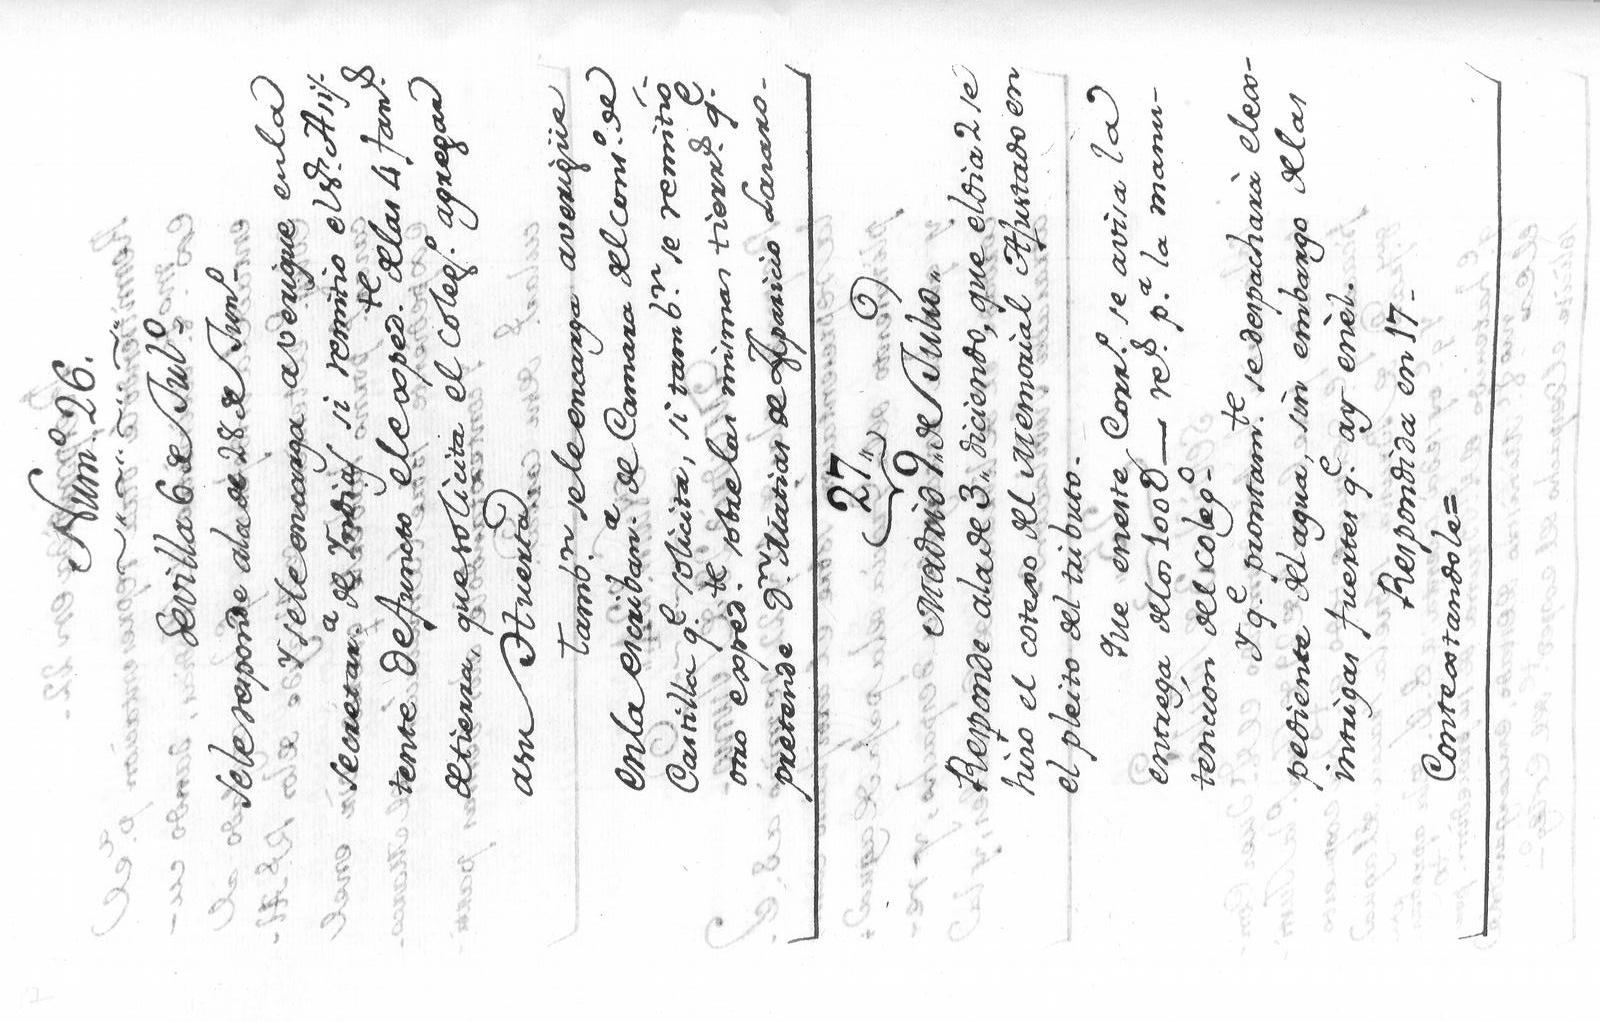 Num.º 26.
Sevilla 6 de Jul.º
Se le responde a la de 28 de Jun.º
Y se le encarga averigue en la
Secretar.ª de Indias si remitio el S.r Asis-
tente de Puncto el exped.te de las 4 fan.s
de tierra, que solicita el Coleg.º agregar
a su Huerta
tamb.n se le encarga averigüe
en la escriban.ª de Camara del Cons.º de
Castilla q.e solicita, si tamb.n se remitió
otro exped.te sobre las mismas tierr.s q.e
pretende D.n Matias de Aparicio Lararo.
27
Madrid 9,, de Julio,,
Responde a la de 3,, diciendo, que el dia 2 se
hizo el cotexo del Memorial Ajustado en
el pleito del tributo.
Que en este Corr.º se avisa la
entrega de los 1000 — r.s p.ª la manu-
tención del coleg.º
Y q.e prontam.te se despachará el ex-
pediente del agua, sin embargo de las
intrigas fuertes q.e ay en èl.
Respondida en 17-
Contextandole=